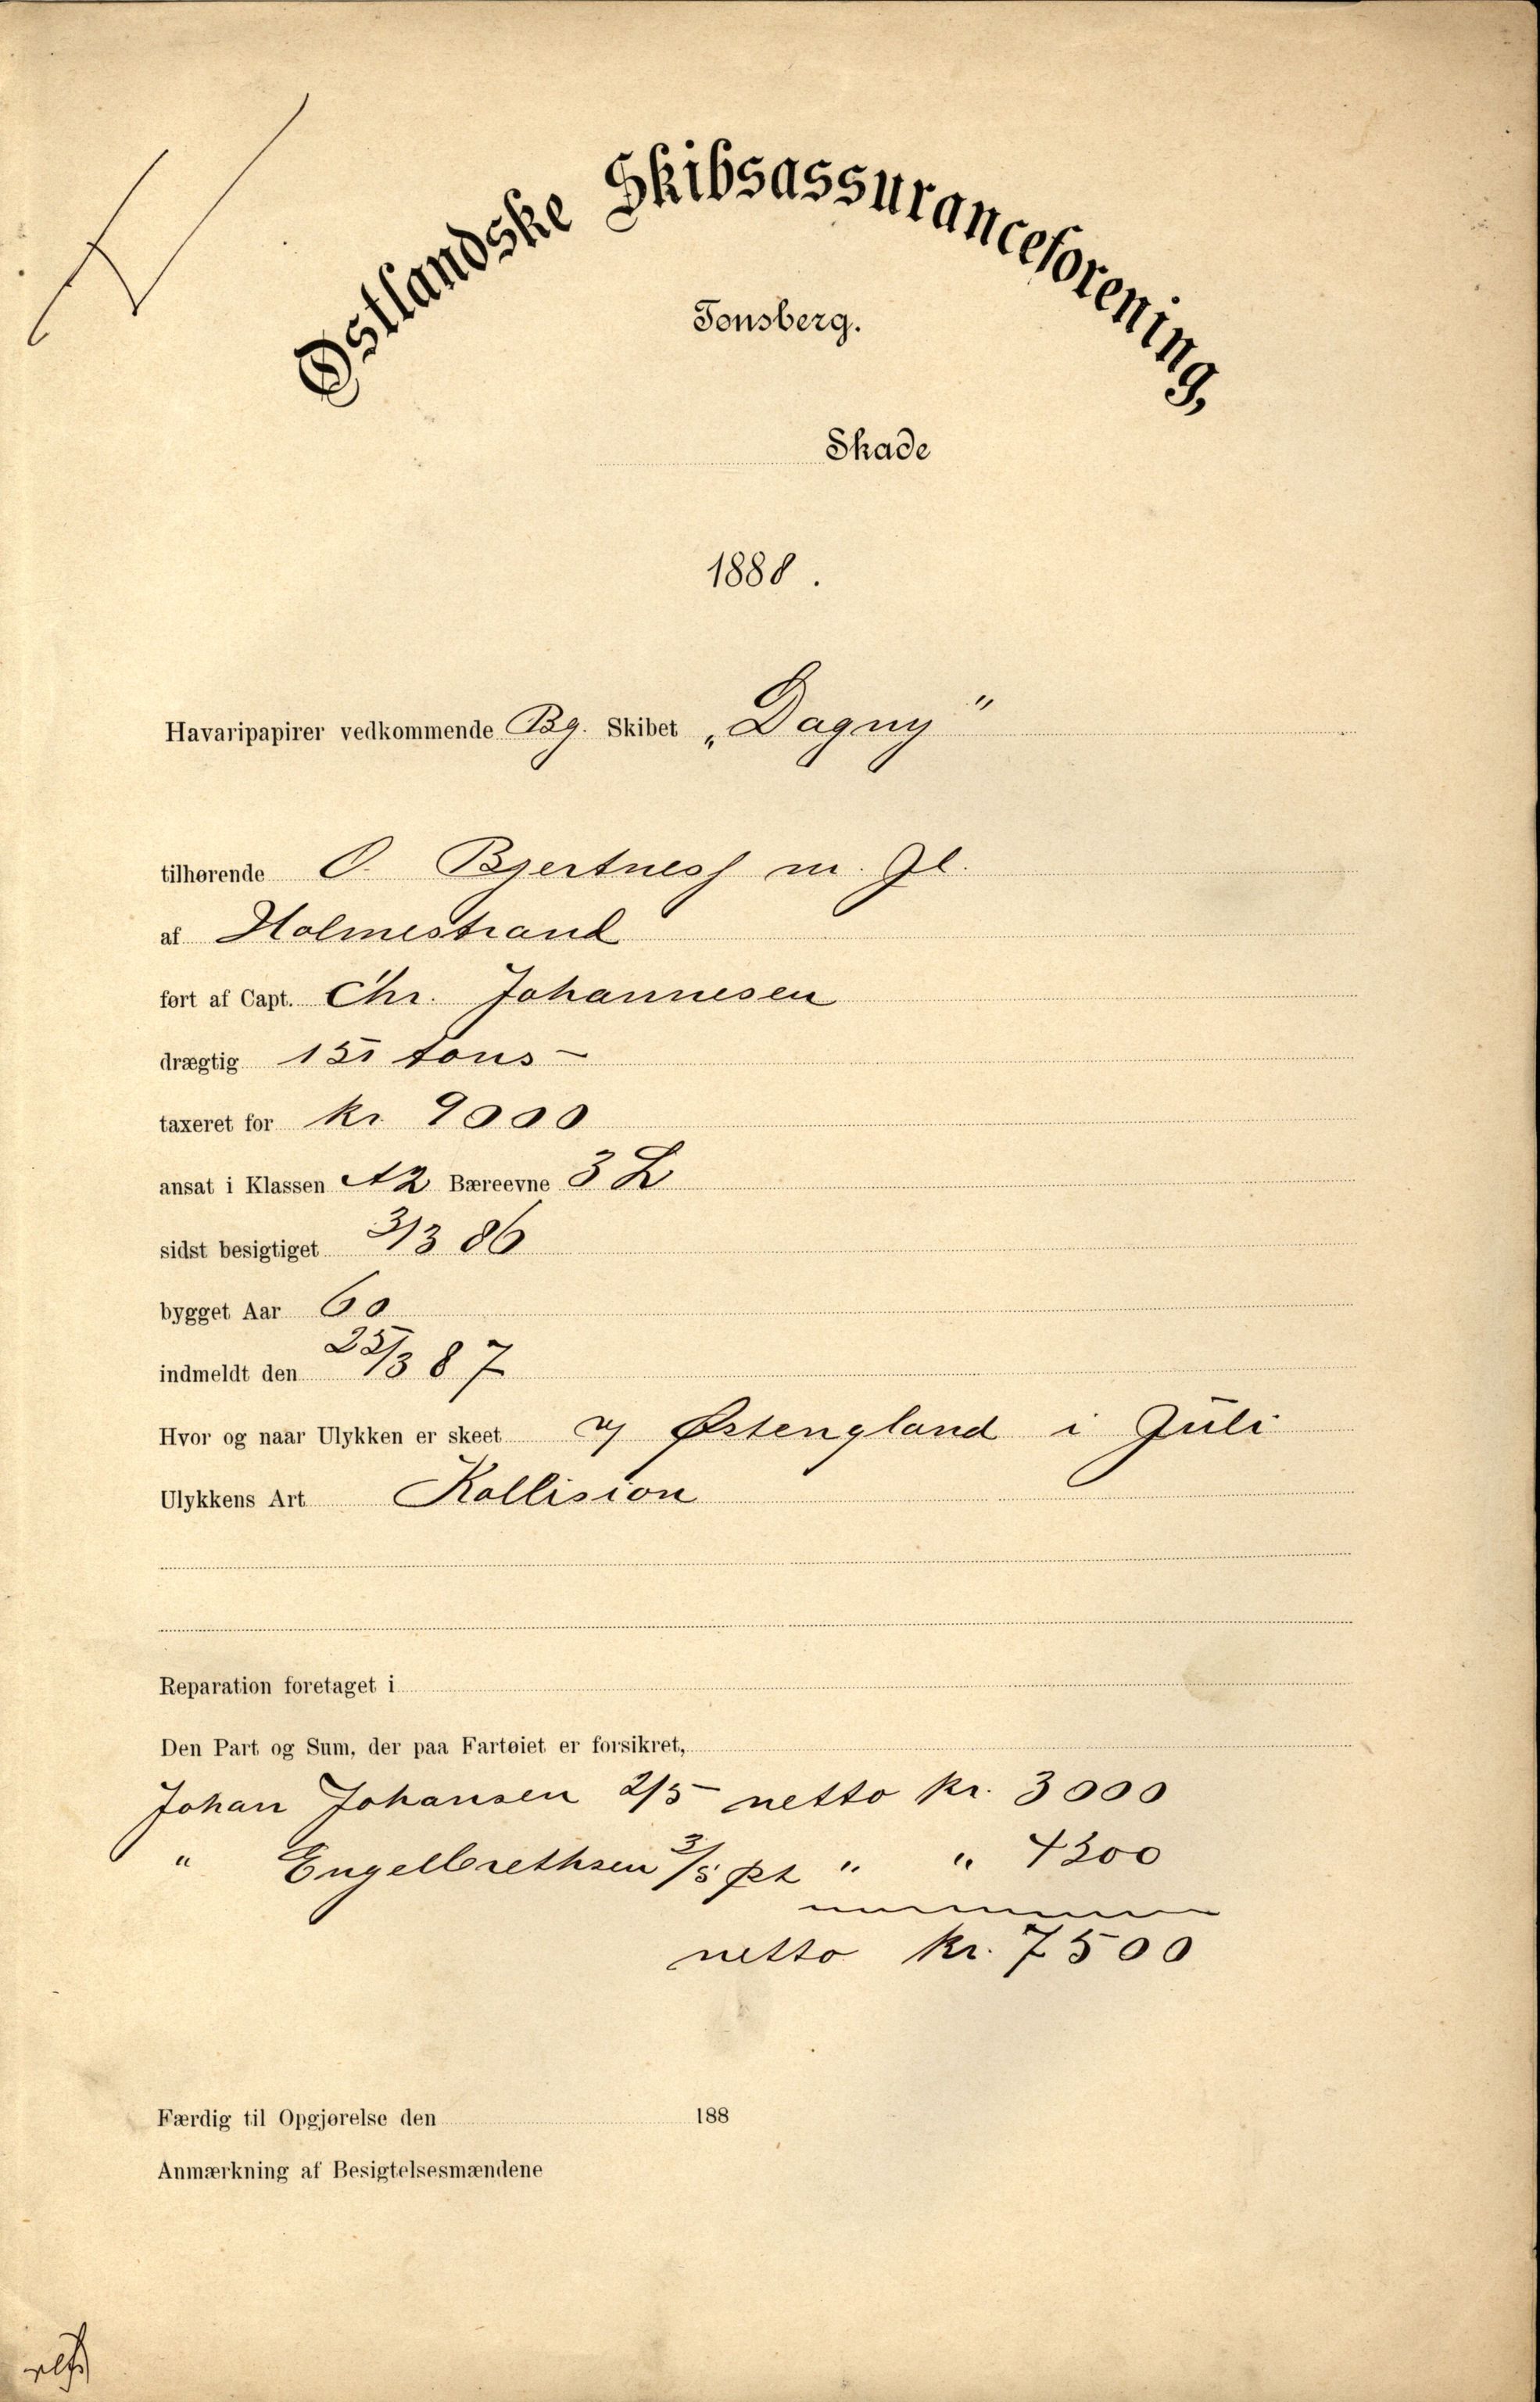 Østlandske Skibsassuranceforening,
Tønsberg.
Skade
1888.
Havaripapirer vedkommende Bg. Skibet „Dagny"
tilhørende O. Bjertness m. Fl.
af Holmestrand
ført af Capt. Chr. Johannesen
drægtig 151 tons
taxeret for kr. 9000
ansat i Klassen A2 Bæreevne 3 L
sidst besigtiget 3/3 86
bygget Aar 60
indmeldt den 25/3 87
Hvor og naar Ulykken er skeet v/ Østengland i Juli
Ulykkens Art Kollision
Reparation foretaget i
Den Part og Sum, der paa Fartøiet er forsikret,
Johan Johansen 2/5 netto kr. 3000
" Engelbrethsen 3/5 pt " " 4500
netto kr. 7500
Færdig til Opgjørelse den 188
Anmærkning af Besigtelsesmændene